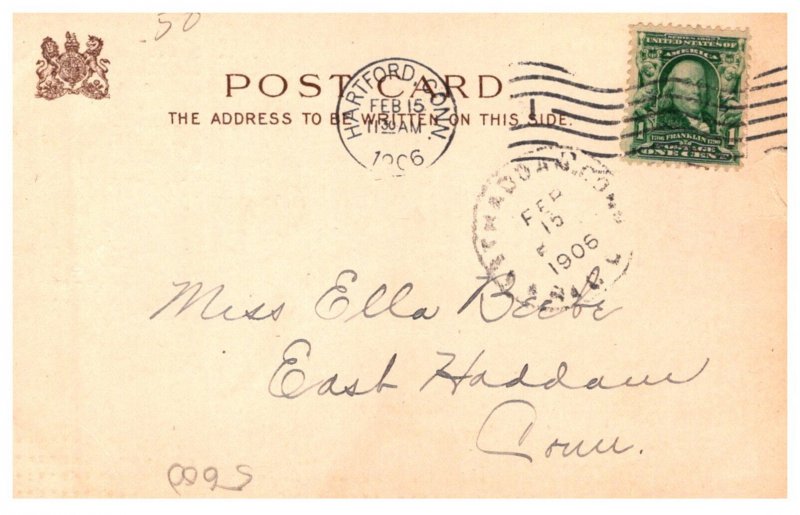 50
POST CARD
THE ADDRESS TO BE WRITTEN ON THIS SIDE.
HARTFORD, CONN.
FEB 15
11 30 AM
1906
SERIES 1902
UNITED STATES OF AMERICA
FRANKLIN
POSTAGE
ONE CENT
FEB
15
1906
Miss Ella Beebe
East Haddam
Conn.